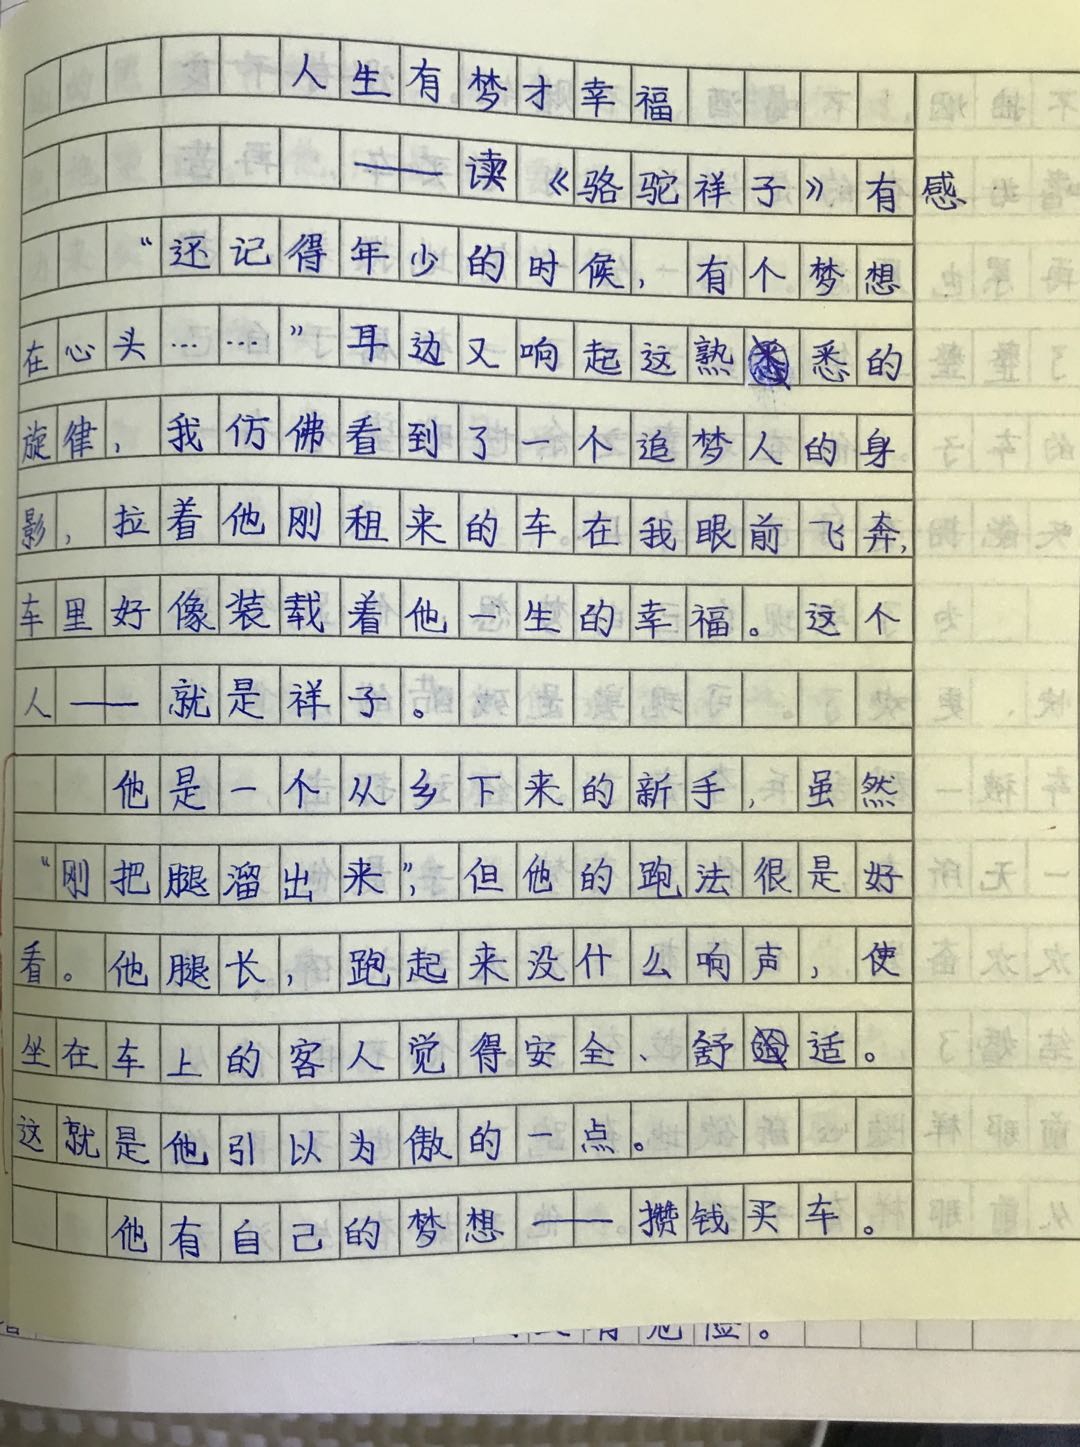 人生有梦才幸福
——读《骆驼祥子》有感
“还记得年少的时候，有个梦想
在心头……”耳边又响起这熟悉的
旋律，我仿佛看到了一个追梦人的身
影，拉着他刚租来的车在我眼前飞奔，
车里好像装载着他一生的幸福。这个
人——就是祥子。
他是一个从乡下来的新手，虽然
“刚把腿溜出来”，但他的跑法很是好
看。他腿长，跑起来没什么响声，使
坐在车上的客人觉得安全、舒适。
这就是他引以为傲的一点。
他有自己的梦想——攒钱买车。
有危险。